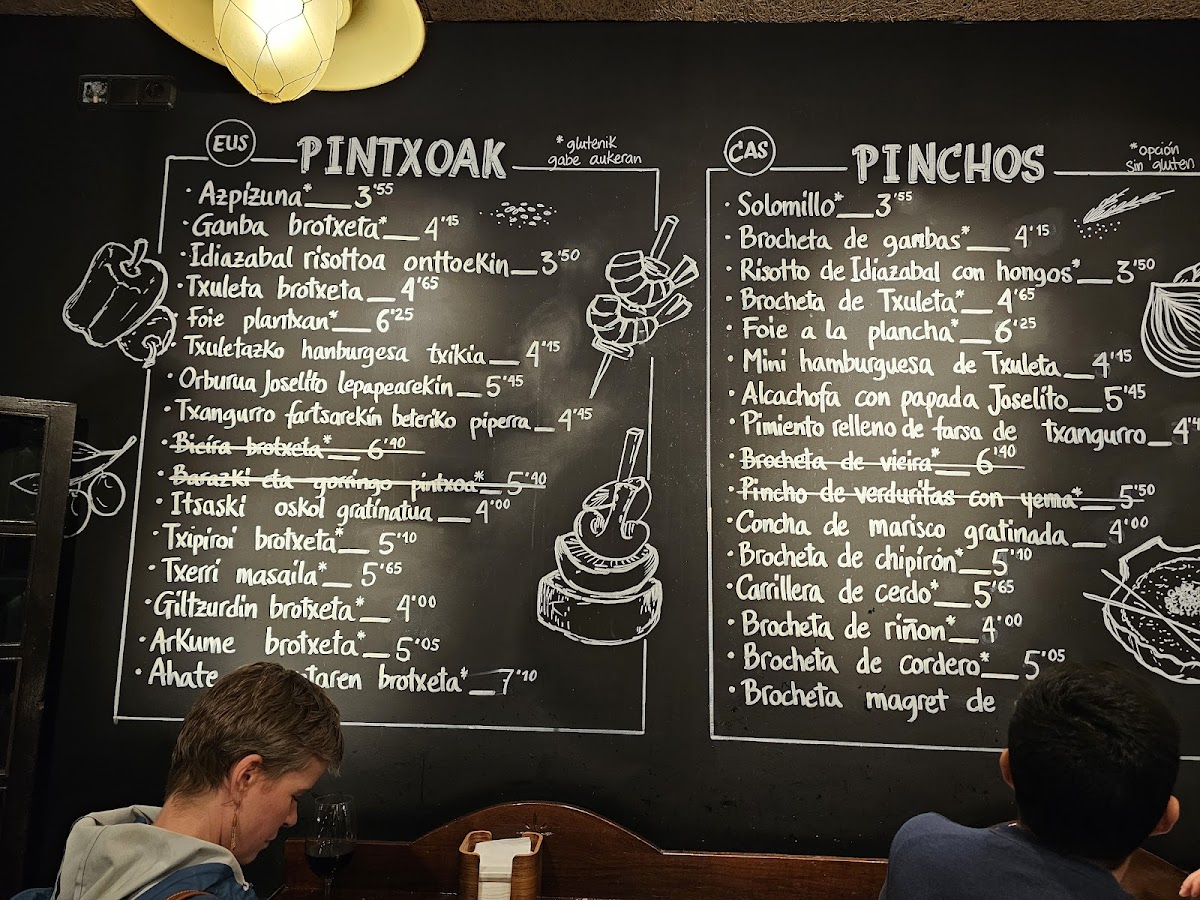 EUS
PINTXOAK
*glutenik
gabe aukeran
· Azpizuna*__3'55
· Ganba brotxeta*__4'15
· Idiazabal risottoa onttoekin__3'50
· Txuleta brotxeta__4'65
· Foie plantxan*__6'25
· Txuletazko hanburgesa txikia__4'15
· Orburua Joselito lepapearekin__5'45
· Txangurro fartsarekin beteriko piperra__4'45
· Bieira brotxeta*__6'40
· Barazki eta gorringo pintxoa*__5'40
· Itsaski oskol gratinatua__4'00
· Txipiroi brotxeta*__5'10
· Txerri masaila*__5'65
· Giltzurdin brotxeta*__4'00
· Arkume brotxeta*__5'05
· Ahate brotxeta*__7'10
CAS
PINCHOS
*opción
sin gluten
· Solomillo*__3'55
· Brocheta de gambas*__4'15
· Risotto de Idiazabal con hongos*__3'50
· Brocheta de Txuleta*__4'65
· Foie a la plancha*__6'25
· Mini hamburguesa de Txuleta__4'15
· Alcachofa con papada Joselito__5'45
· Pimiento relleno de farsa de txangurro__4'4
· Brocheta de vieira*__6'40
· Pincho de verduritas con yema*__5'50
· Concha de marisco gratinada__4'00
· Brocheta de chipirón*__5'10
· Carrillera de cerdo*__5'65
· Brocheta de riñon*__4'00
· Brocheta de cordero*__5'05
· Brocheta magret de